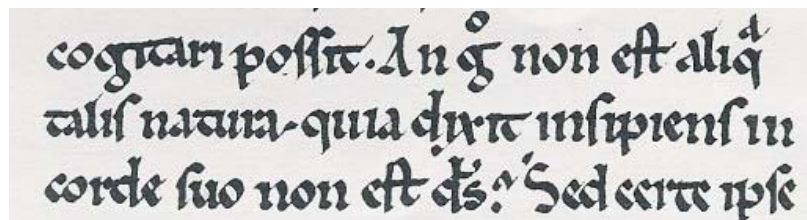 cogitari poſſit. An gͦ non eſt aliqᵃ
taliſ natura, quia dixit inſipienſ in
corde ſuo non eſt d̄s? Sed certe ipſe